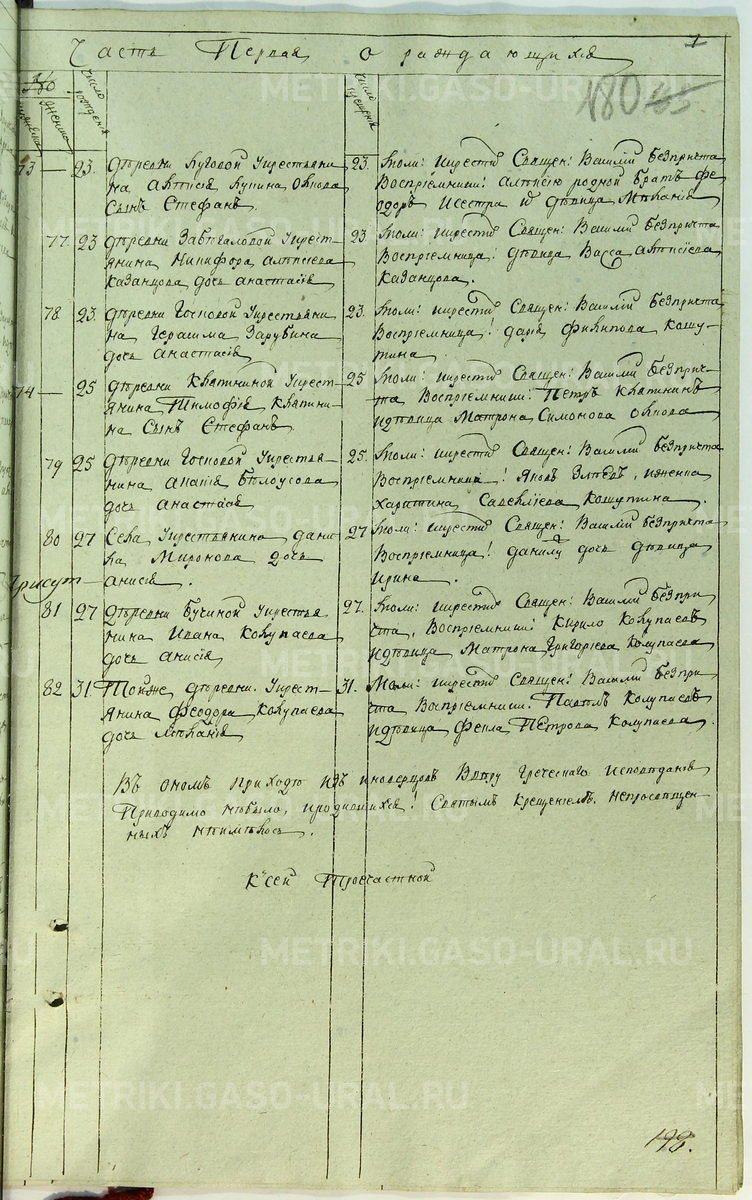 Часть Первая о раждающихся
1
№
мужеска
женска
число рождения
число крещения
180
73 — 23. деревни Луговой Крестьяни
на
сынъ Стефанъ.
23. Мол: и крести Священ: Василий безпричта
Воспріемники: Алексію родной братъ Фе
доръ и сестра дѣвица Меланія
77. 23 деревни Крест-
янина Никифора Алексіева
Казанцова дочь Анастасія
23 Мол: и крести Священ: Василий безпричта
Воспріемница: дѣвица Васса Алексіева
Казанцова.
78. 23. деревни Госьковой Крестьяни
на Герасима Зарубина
дочь Анастасія
23. Мол: и крести Священ: Василий безпричта
Воспріемница: Дарія Филипова Кошу-
тина
74 — 25 деревни Квятниной Крест-
янина Тимофія Квятни-
на сынъ Стефанъ.
25 Мол: и крести Священ: Василий безприч-
та Воспріемники: Петръ Квятнинъ
и дѣвица Матрона Симонова
79 25 деревни Госьковой Крестья-
нина Ананія Бѣлоусова
дочь Анастасія
25. Мол: и крести Священ: Василий безпричта
Воспріемники: Яковъ и женка
Харитина Савеліева Кошутина.
80 27 Села Крестьянина Дани-
ла Миронова дочь
Анисія.
27 Мол: и крести Священ: Василий безпричта
Воспріемница: Данилу дочь дѣвица
Ирина.
81 27 деревни Бучиной Крестья
нина Ивана Колупаева
дочь Анисія
27. Мол: и крести Священ: Василий безпри
чта, Воспріемники: Кирило Колупаевъ
и дѣвица Матрона Григоріева Колупаева
82 31. Тойже деревни. Крест-
янина Феодора Колупаева
дочь Меланія
31. Мол: и крести Священ: Василий безпри
чта Воспріемники: Павелъ Колупаевъ
и дѣвица Фекла Петрова Колупаева.
Въ ономъ приходѣ изъ иноверцовъ Вѣру греческаго исповѣданія
Приводимо небыло, Святымъ крещеніемъ непросвѣщен
ныхъ неимѣлось.
К сей Троечастной
198.
METRIKI.GASO-URAL.RU